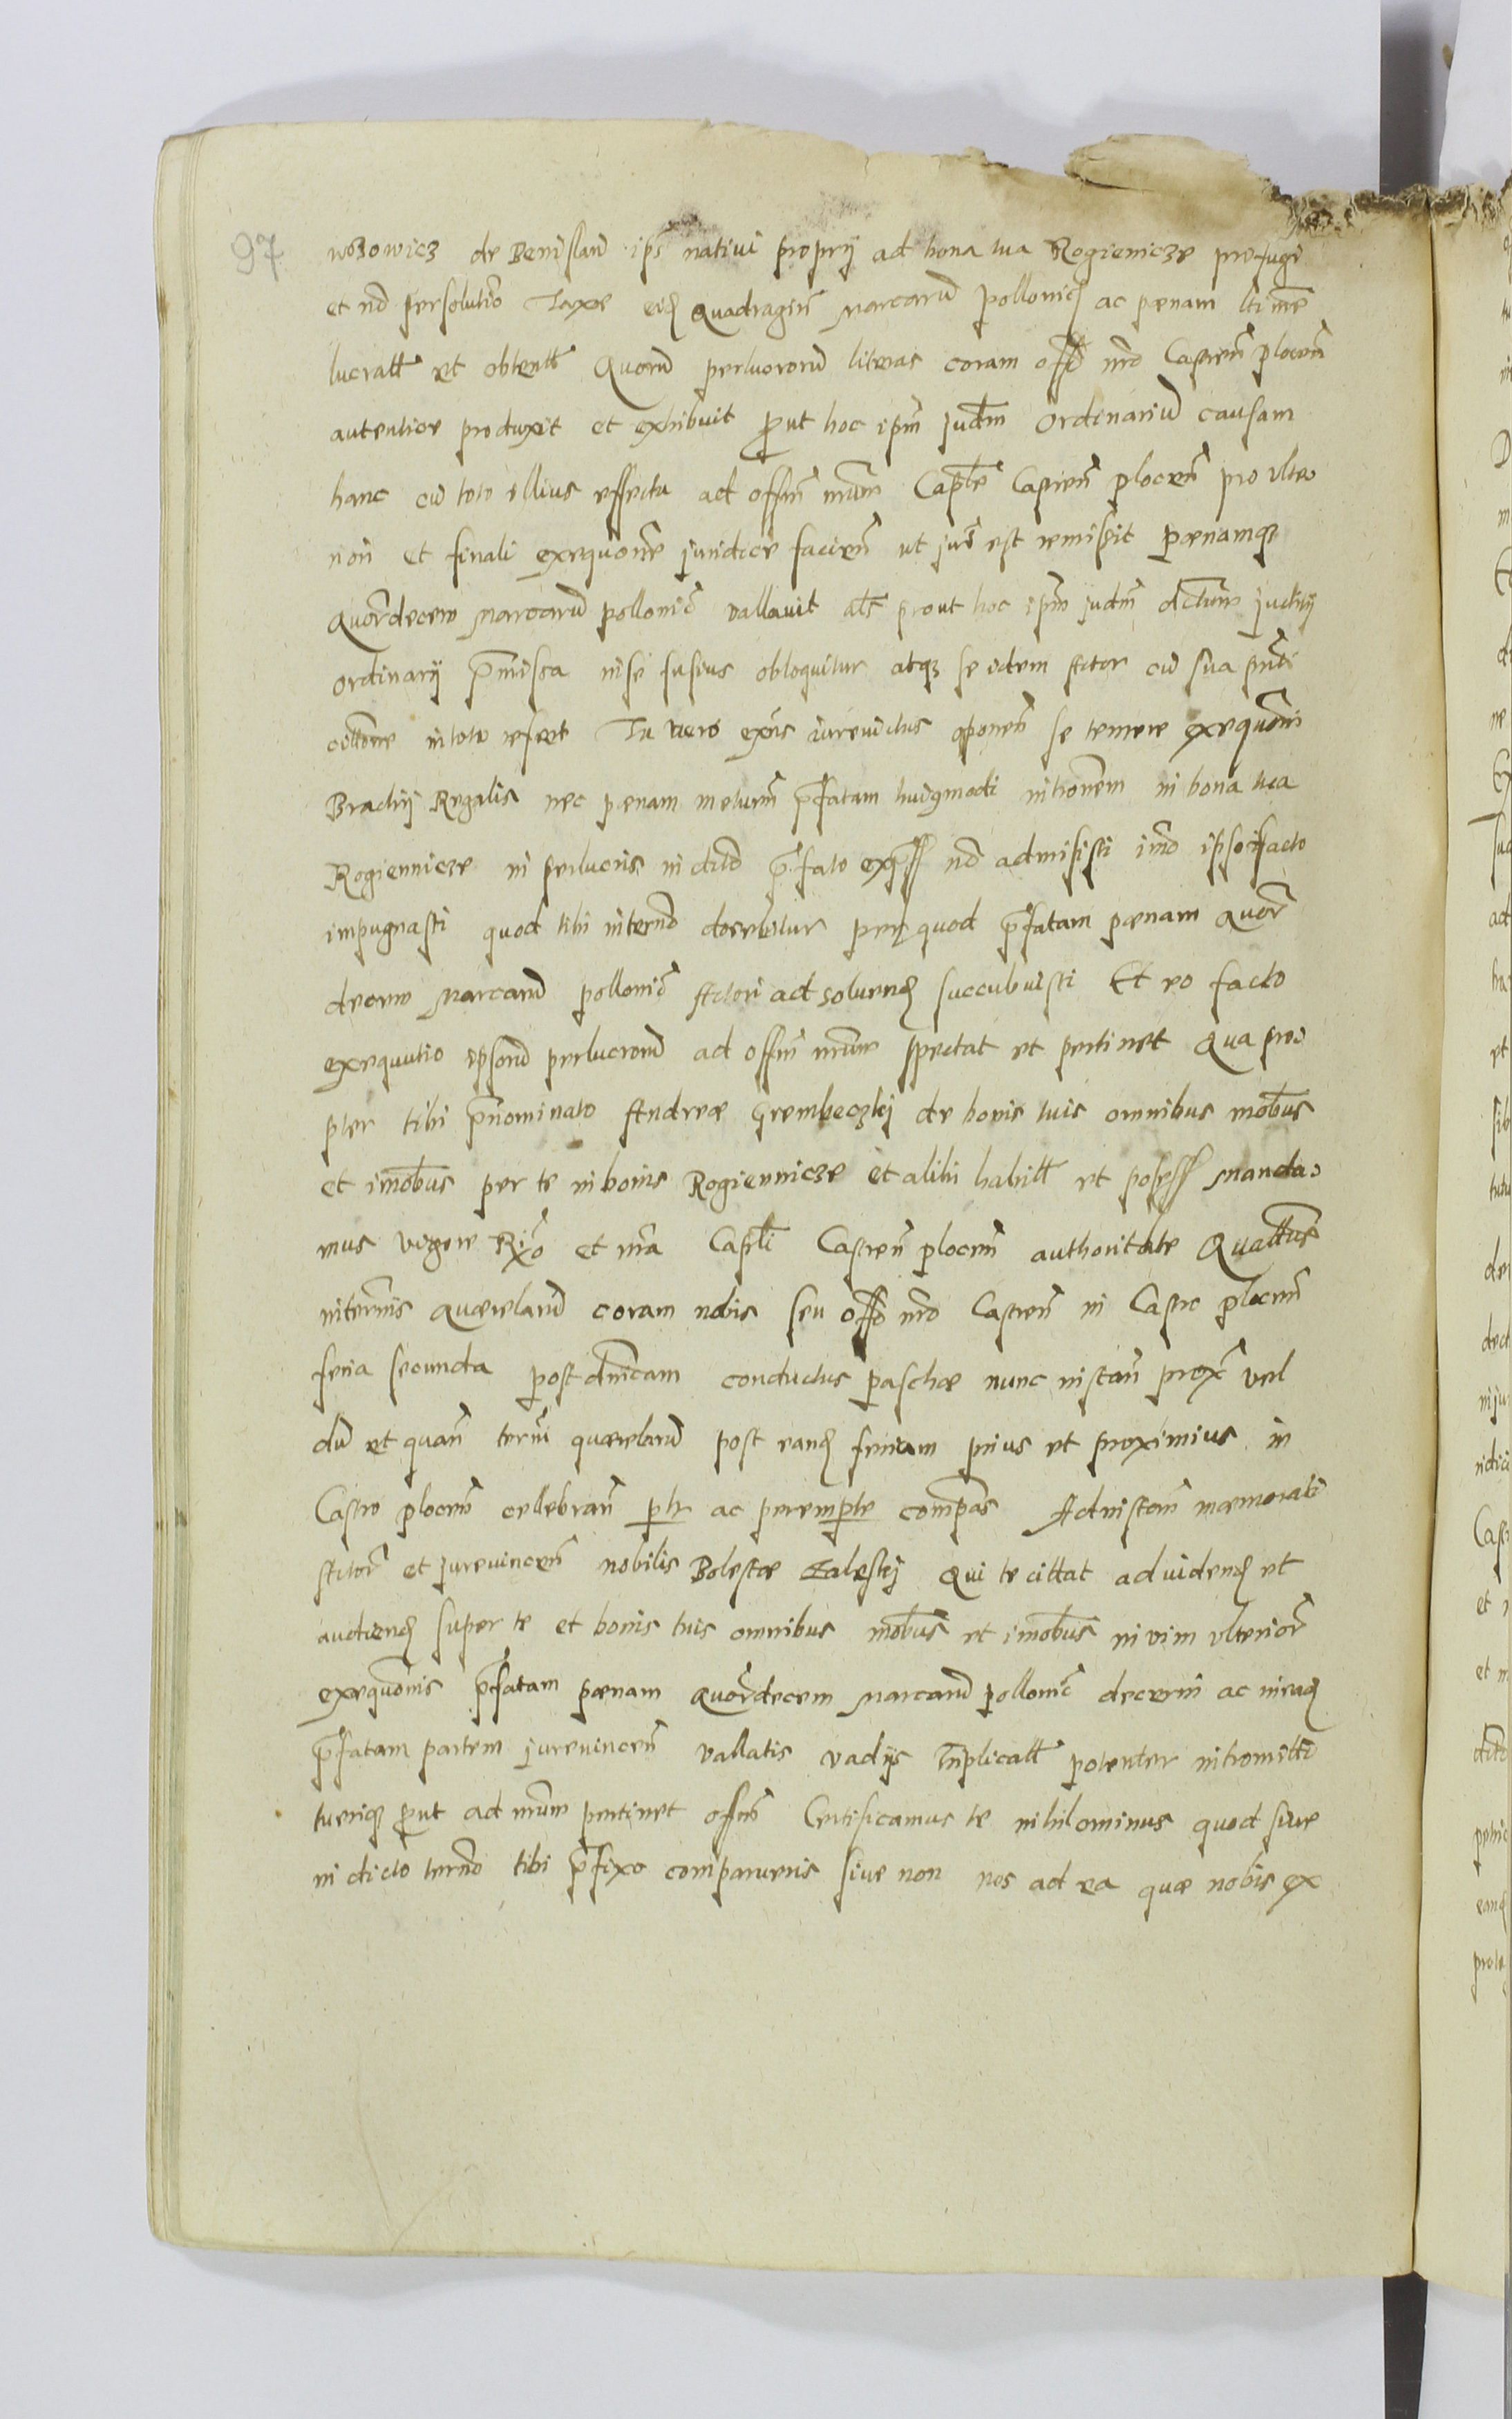 97
wozowicz de Benislaw ips nativi proprij ad bona tua Rogienicze profugi
et nō persolutiō Taxæ eiꝰ Quadragin̄ marcarū pollonic ac pænam
lucratt et obtentt Quorū perlucrorū literas coram offō nrō Castren̄ plocen̄
autentice produxit et exhibuit ꝓut hoc ipm̄ judm̄ Ordinariū causam
hanc cū toto illius effectu ad offm̄ nrūm Capłle Castren̄ plocen̄ pro ulte
riori et finali exequōne juridice facien̄ ut juris est remissit pænamqȝ
quordecem marcarū pollonic̄ vallavit als prout hoc ipm̄ judm̄ dictum judicij
ordinarij p̄missa in se fusius obloquitur atqȝ se idem Actor cū sua pn̄ti
cittōne in toto refert Tu vero exn̄s jurevictus oponen̄ se temere exequōni
Brachij Regalis nec pænam metuen̄ p̄fatam huiqmodi intromem in bona tua
Rogiennicze in perlucris in dicto p̄fato expss nō admisisti imō ipsofacto
impugnasti quod tibi in termō docebitur perqȝ quod p̄fatam pænam Quor
decem marcarū pollonic̄ Actori ad solvenꝰ succubuisti Et eo facto
exequutio ipsorū perlucrorū ad offm̄ nrūm spectat et pertinet Qua pro
pter tibi p̄nominato Andreæ Grembeczkj de bonis tuis omnibus mobus
et imobus per te in bonis Rogiennicze et alibi habitt et possess manda
mus vigore et nrā Capłli Castren̄ plocen̄ authoritate Quattus
in termis quærelarū coram nobis seu offō nrō Castren̄ in Castro plocen̄
feria secunda post dnicam conductus paschæ nunc instan̄ prox̄ vel
dū et quan̄ termi quærelarū post eanꝰ feriam prius et proximius in
Castro plocen̄ cellebran̄ ptr ac perempte compās Ad instan̄ memorati
Actor̄ et jurevincen̄ nobilis Bolestæ Zaleskj Qui te cittat ad videnꝰ et
audienꝰ super te et bonis tuis omnibus mobus et imobus in vim ulterior̄
exæquōnis p̄fatam pænam quordecem marcarū pollonic̄ decerni ac in eaꝰ
p̄fatam partem jurevincen̄ vallatis vadijs Triplicatt potenter intromitti
tueriqȝ ꝓut ad nrūm pertinet offm̄ Certificamus te nihilominus quod sive
in dicto termō tibi p̄fixo comparueris sive non nos ad ea quæ nobis ex